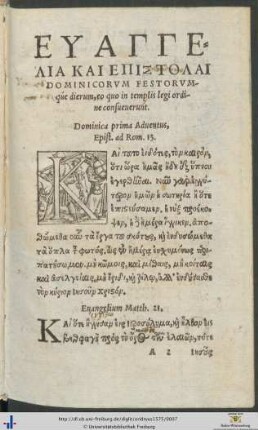 ΕΥΑΓΓΕ-
ΛΙΑ ΚΑΙ ΕΠΙΣΤΟΛΑΙ
DOMINICORVM FESTORVM-
que dierum, eo quo in templis legi ordi-
ne consueuerunt.
Dominica prima Aduentus,
Epist. ad Rom. 13.
Καὶ τοῦτο εἰδότες, τὸν καιρὸν,
ὅτι ὥρα ἡμᾶς ἤδη ἐξ ὕπνου
ἐγερθῆναι. νῦν γὰρ ἐγγύ-
τερον ἡμῶν ἡ σωτηρία ἢ ὅτε
ἐπιστεύσαμεν. ἡ νὺξ προέκο-
ψεν, ἡ ἡμέρα ἤγγικεν. ἀπο-
θώμεθα οὖν τὰ ἔργα τοῦ σκότους, καὶ ἐνδυσώμεθα
τὰ ὅπλα τοῦ φωτός. ὡς ἐν ἡμέρᾳ εὐσχημόνως περι-
πατήσωμεν. μὴ κώμοις, καὶ μέθαις, μὴ κοίταις
καὶ ἀσελγείαις, μὴ ἔριδι, καὶ ζήλῳ. ἀλλ' ἐνδύσασθε
τὸν κύριον ἰησοῦν χριστόν.
Euangelium Matth. 21.
Καὶ ὅτε ἤγγισαν εἰς ἱεροσόλυμα, καὶ ἦλθον εἰς
βηθφαγὴ πρὸς τὸ ὄρος τῶν ἐλαιῶν, τότε
A 2 ἰησοῦς
© Universitätsbibliothek Freiburg